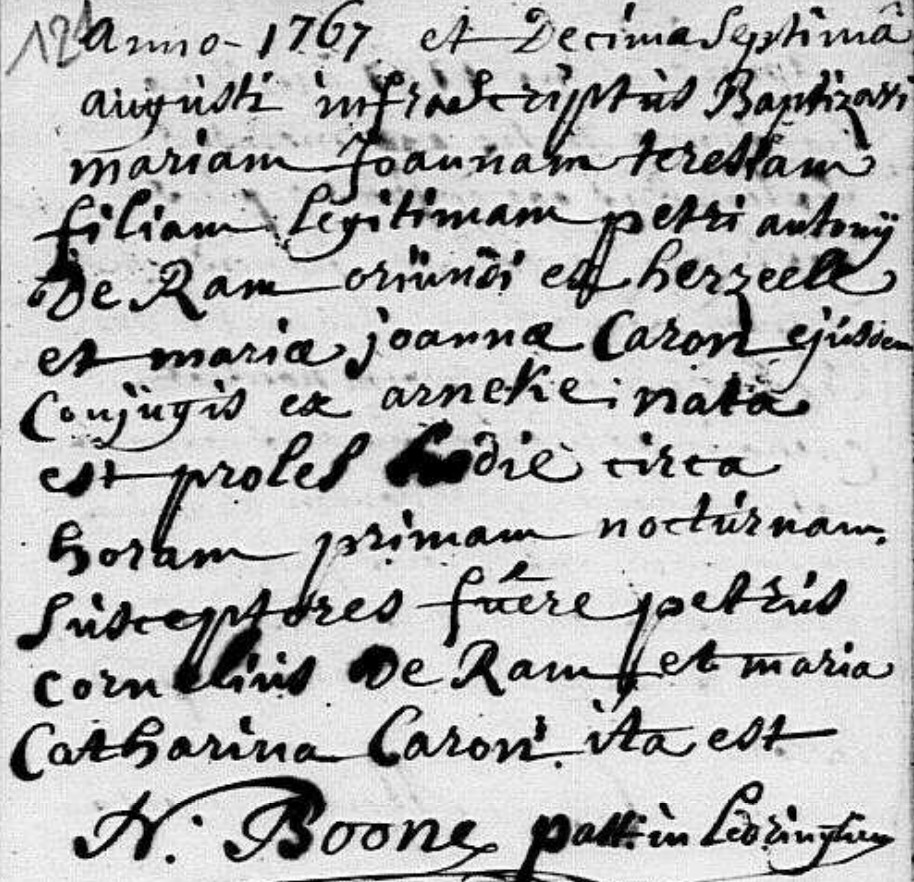 Anno 1767 et Decima Septimâ
augusti infrascriptus Baptizavi
mariam Joannam teresiam
filiam Legitimam petri antonij
De Ram oriundi ex herzeele
et mariæ joannæ Caron ejusdem
Conjugis ex arneke; nata
est proles hodie circa
horam primam nocturnam.
Susceptores fuêre petrus
cornelius De Ram et maria
Catharina Caron. ita est
N. Boone past: in Ledringhem